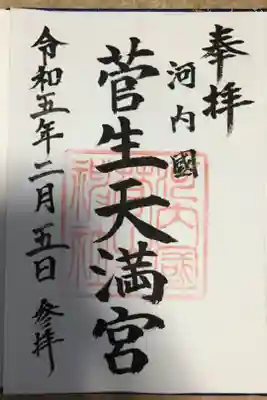 奉拝
河内國
菅生天満宮
令和五年二月五日 参拝